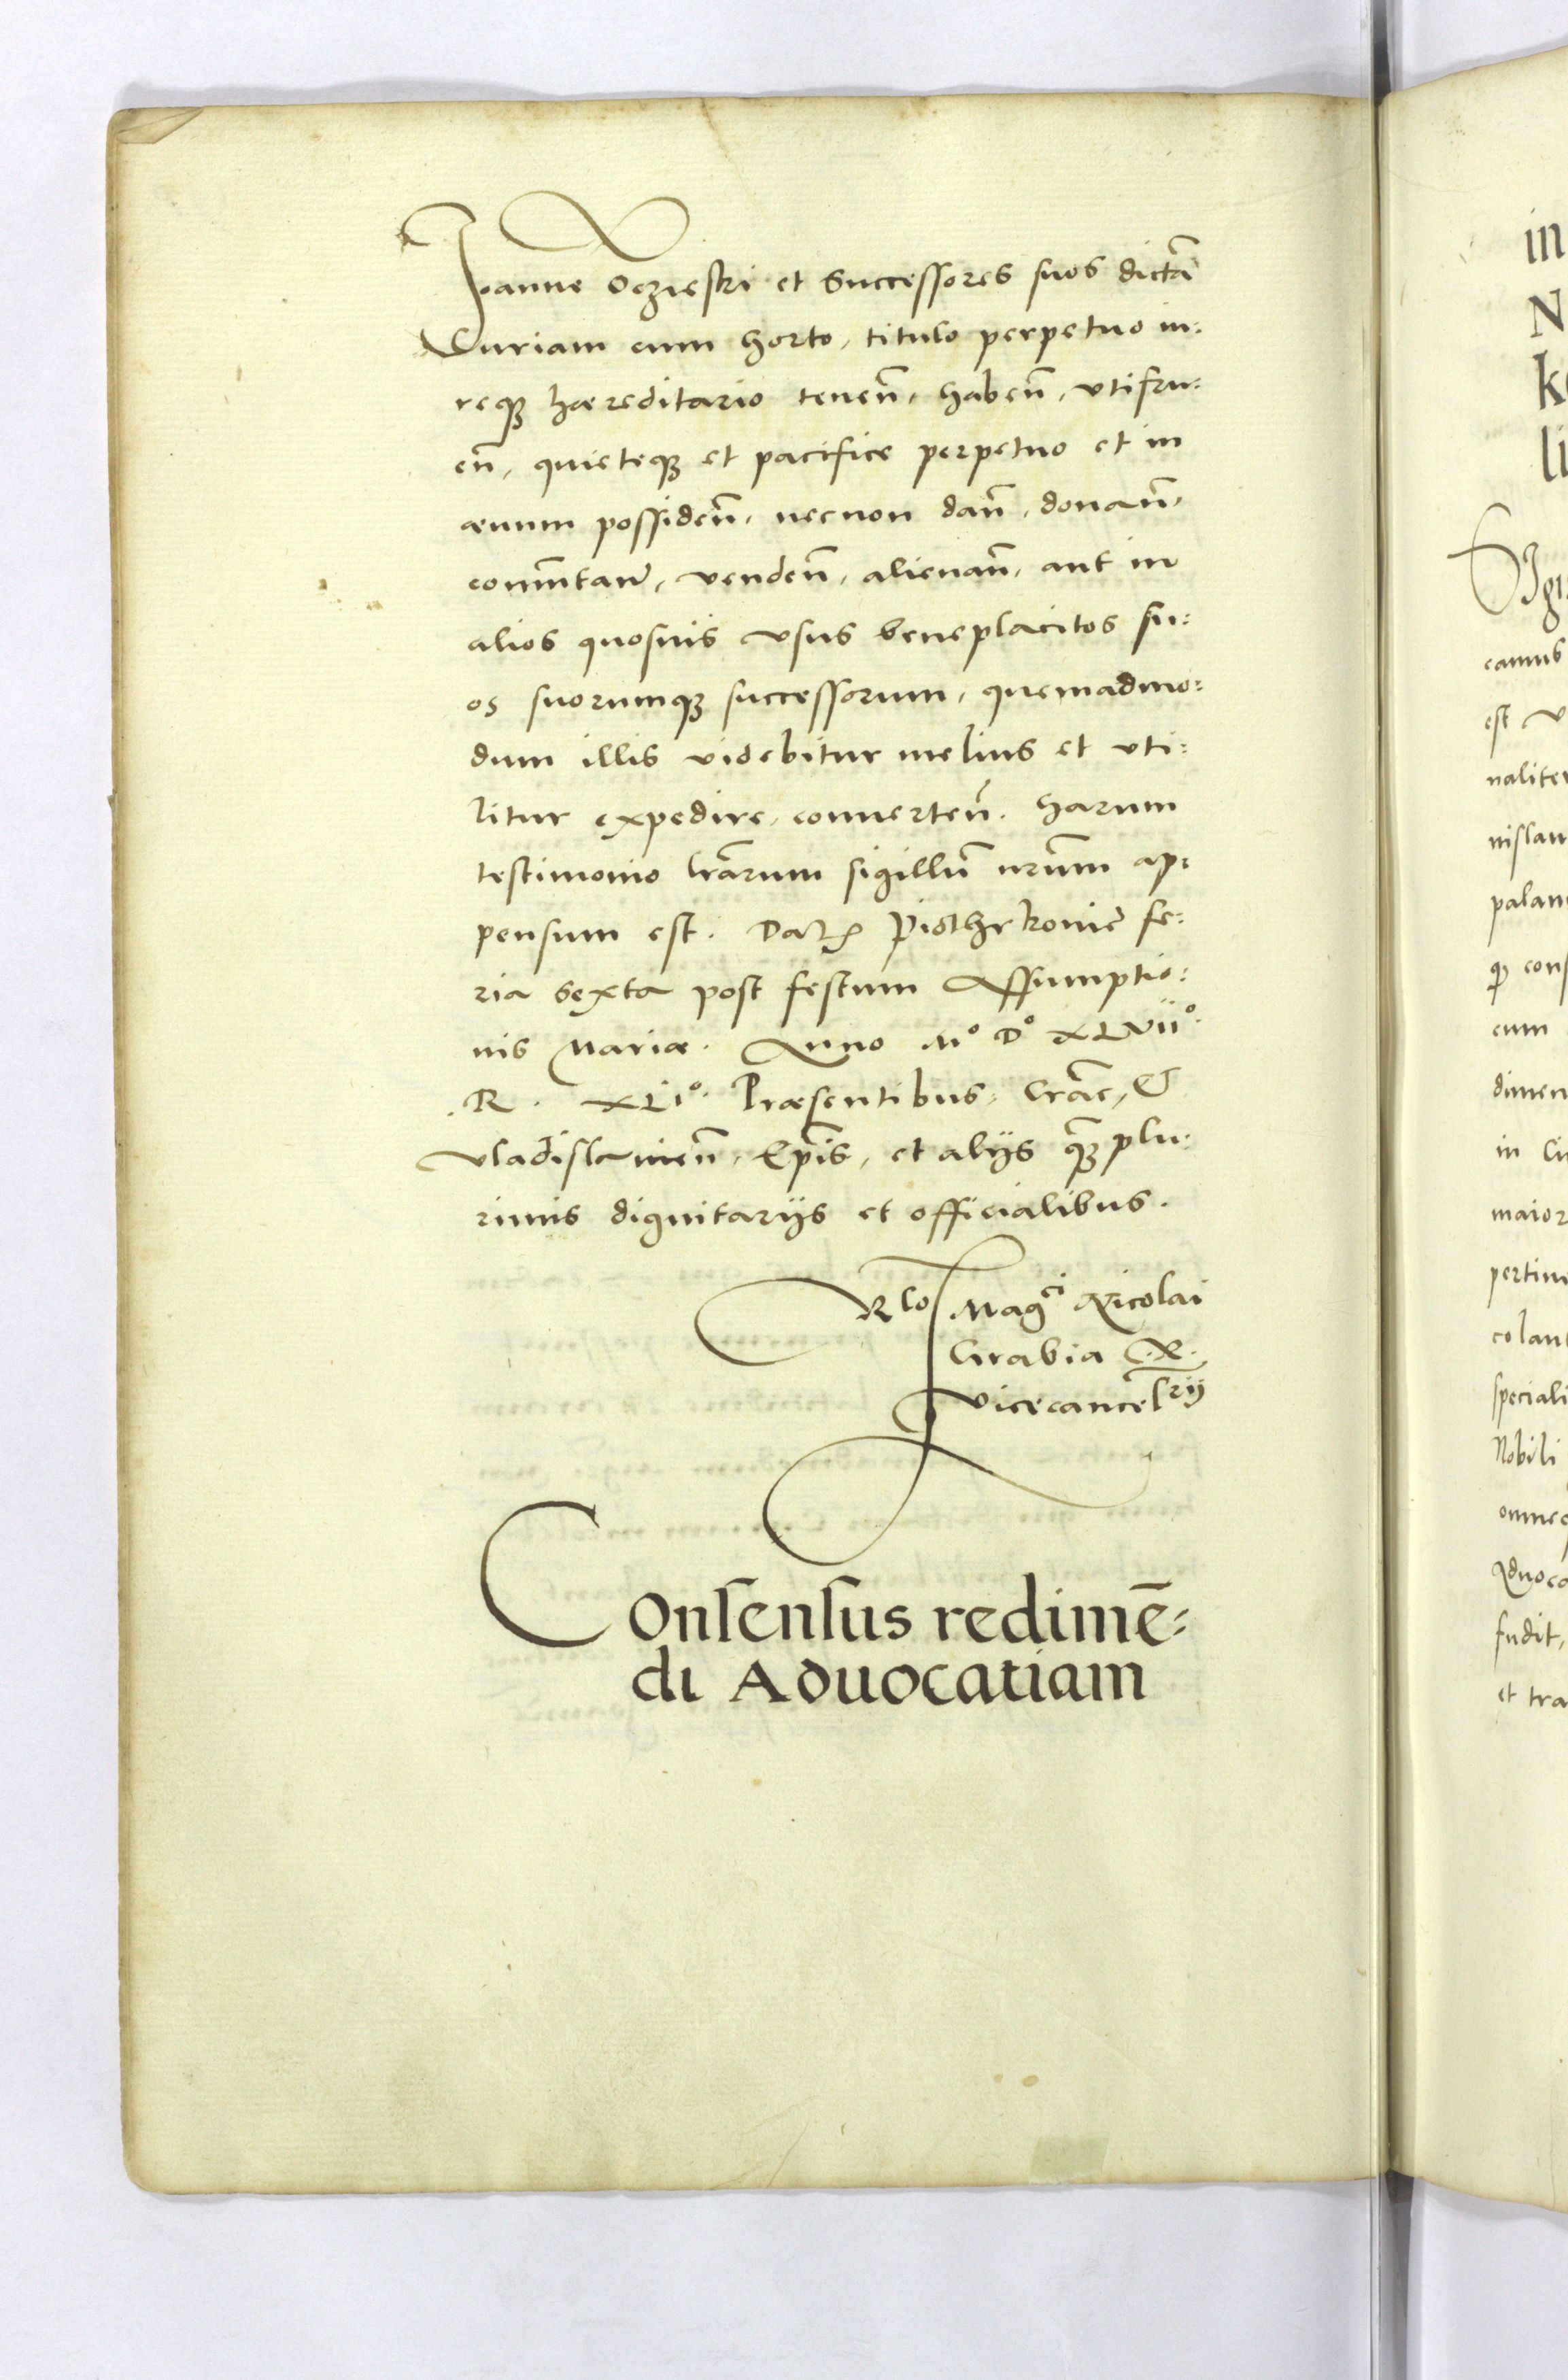 Joanne Oczieski et Successores suos dictā
Curiam cum horto, titulo perpetuo iu:
reqꝫ hæreditario tenen̄, haben̄, vtifru:
en̄, quieteqꝫ et pacifice perpetuo et in
æuum possiden̄, necnon dan̄, donan̄,
commutan̄, venden̄, alienan̄, aut in
alios quosuis vsus beneplacitos su:
os suorumqꝫ successorum, quemadmo:
dum illis videbitur melius et vti:
litur expedire, conuerten̄. Harum
testimonio lrārum sigillū nrūm ap:
pensum est. Datꝭ Piothrkoniē fe:
ria sexta post festum Assumptio:
nis Mariæ. Anno Mº Dº XLVIIº.
.R. XLIº. Præsentibus, Crāc, &
Vladislauien̄, Epīs, et alijs qꝫ̄ plu:
rimis dignitarijs et officialibus.
Rlo Magci Nicolai
Grabia .R.
Vicecancellrij
Consensus redimē:
di Aduocatiam
in
N
k
li
Sigi
camus
est v
naliter
nislau
palan
cons
cum
dimen
in
maior
pertine
colant
speciali
Nobili
omne
Aduoca
fudit,
et tra